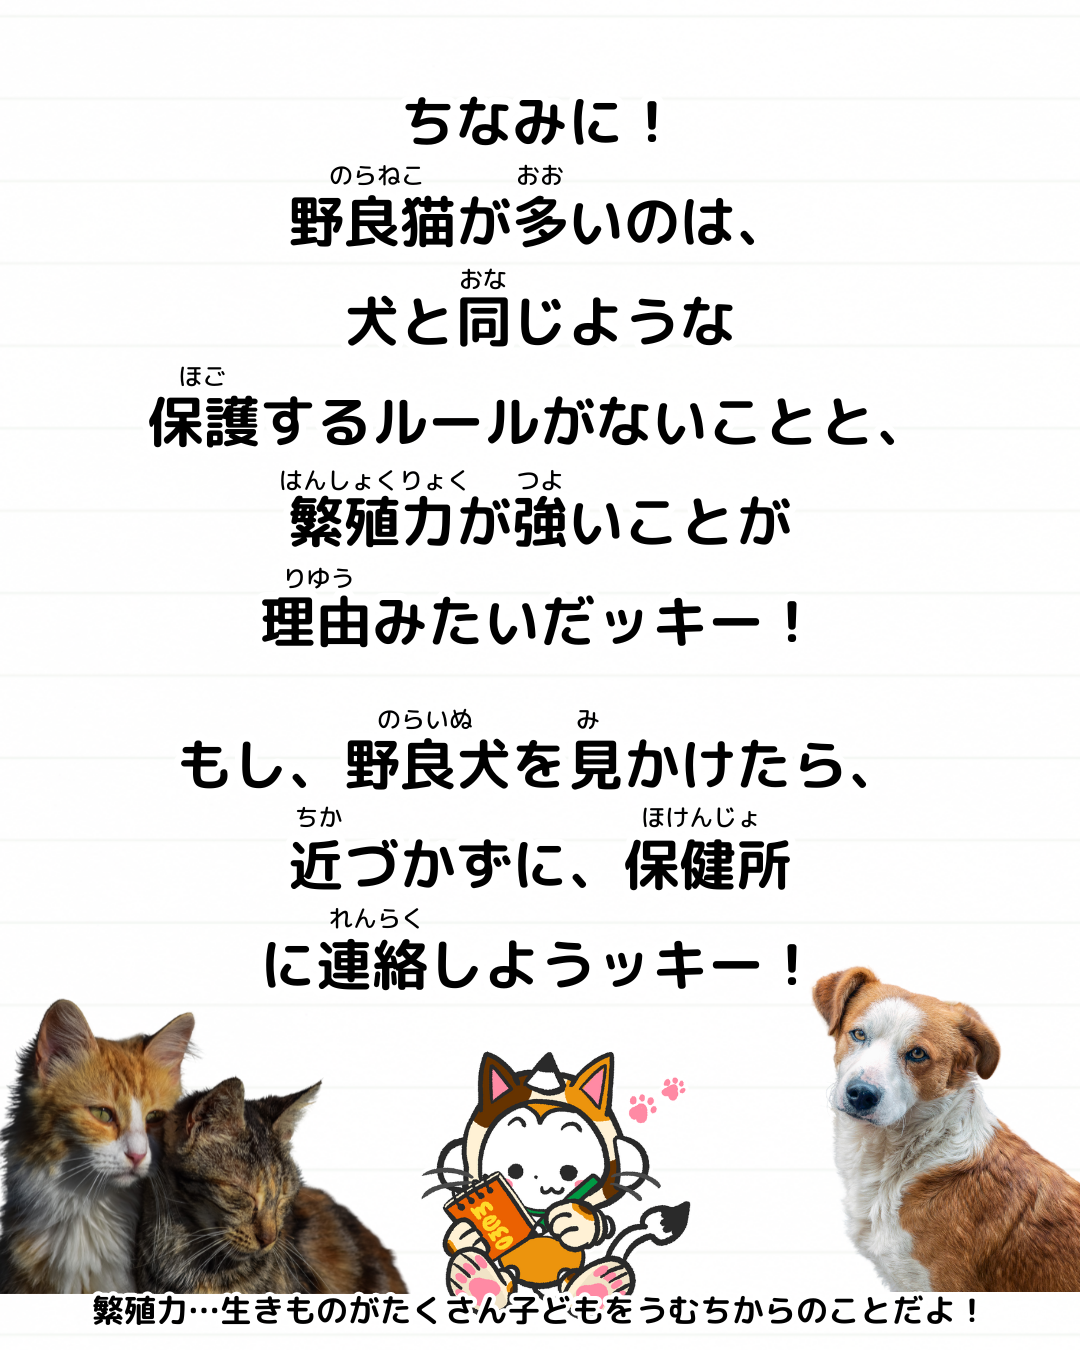 ちなみに！
のらねこ おお
野良猫が多いのは、
おな
犬と同じような
ほご
保護するルールがないことと、
はんしょくりょく つよ
繁殖力が強いことが
りゆう
理由みたいだッキー！
のらいぬ み
もし、野良犬を見かけたら、
ちか ほけんじょ
近づかずに、保健所
れんらく
に連絡しようッキー！
memo
繁殖力…生きものがたくさん子どもをうむちからのことだよ！